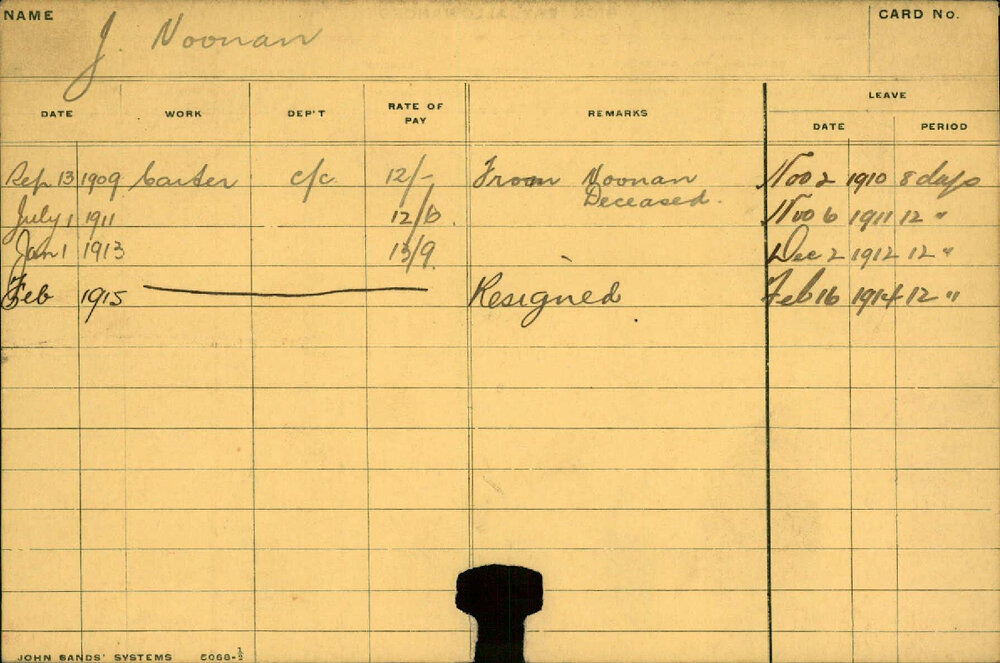 NAME
J. Noonan
CARD NO.
DATE WORK DEP'T RATE OF PAY REMARKS LEAVE DATE PERIOD
Sep 13 1909 Carter c/c. 12/- From Noonan Deceased. Nov 2 1910 8 days
July 1 1911 12/6. Nov 6 1911 12 "
Jan 1 1913 13/9. Dec 2 1912 12 "
Feb 1915 Resigned Feb 16 1914 12 "
JOHN SANDS' SYSTEMS 6068-½